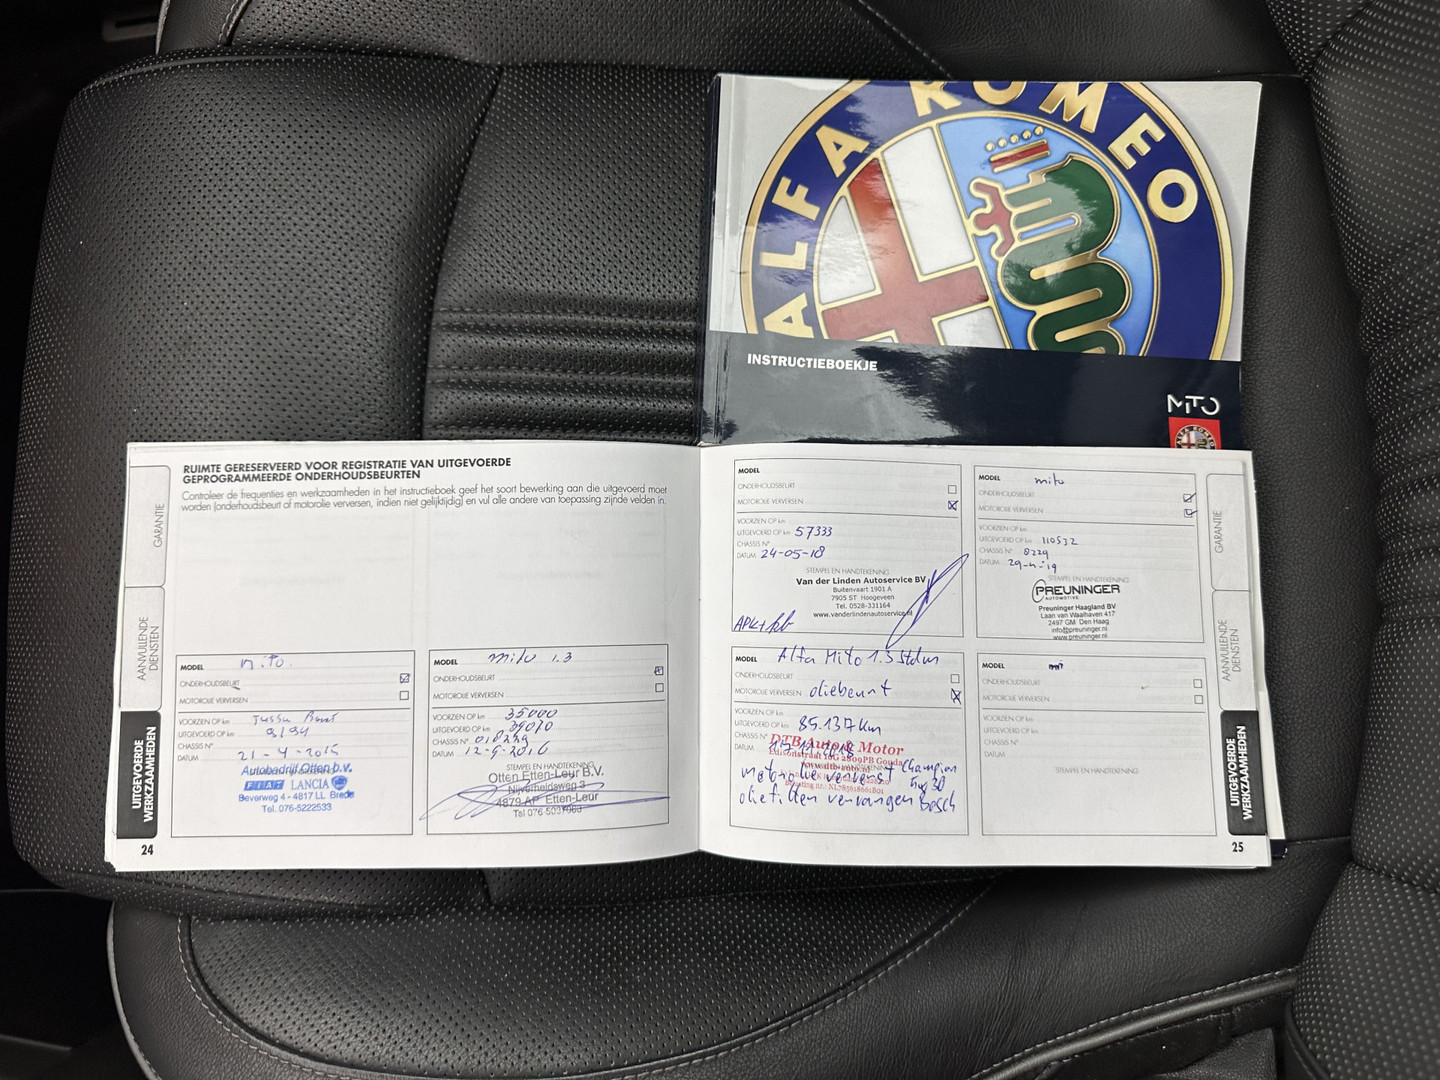 ALFA ROMEO
INSTRUCTIEBOEKJE
MiTO
ALFA ROMEO
GARANTIE
AANVULLENDE DIENSTEN
UITGEVOERDE WERKZAAMHEDEN
RUIMTE GERESERVEERD VOOR REGISTRATIE VAN UITGEVOERDE
GEPROGRAMMEERDE ONDERHOUDSBEURTEN
Controleer de frequenties en werkzaamheden in het instructieboek geef het soort bewerking aan die uitgevoerd moet
worden (onderhoudsbeurt of motorolie verversen, indien niet gelijktijdig) en vul alle andere van toepassing zijnde velden in.
MODEL mito.
ONDERHOUDSBEURT
MOTOROLIE VERVERSEN
VOORZIEN OP km
UITGEVOERD OP km
CHASSIS N°
DATUM 21-4-2015
Autobedrijf Otten b.v.
FIAT LANCIA
Beverweg 4 - 4817 LL Breda
Tel. 076-5222533
24
MODEL mito 1.3
ONDERHOUDSBEURT
MOTOROLIE VERVERSEN
VOORZIEN OP km 35000
UITGEVOERD OP km
CHASSIS N°
DATUM 12-9-2016
STEMPEL EN HANDTEKENING
Otten Etten-Leur B.V.
Nijverheidsweg 3
4879 AP Etten-Leur
Tel 076-5037063
MODEL
ONDERHOUDSBEURT
MOTOROLIE VERVERSEN
VOORZIEN OP km
UITGEVOERD OP km 57333
CHASSIS N°
DATUM 24-05-18
STEMPEL EN HANDTEKENING
Van der Linden Autoservice BV
Buitenvaart 1901 A
7905 ST Hoogeveen
Tel. 0528-331164
www.vanderlindenautoservice.nl
MODEL mito
ONDERHOUDSBEURT
MOTOROLIE VERVERSEN
VOORZIEN OP km
UITGEVOERD OP km 110532
CHASSIS N° 8229
DATUM
STEMPEL EN HANDTEKENING
PREUNINGER
AUTOMOTIVE
Preuninger Haagland BV
Laan van Waalhaven 417
2497 GM Den Haag
info@preuninger.nl
www.preuninger.nl
MODEL Alfa Mito 1.3 Stdm
ONDERHOUDSBEURT
MOTOROLIE VERVERSEN oliebeurt
VOORZIEN OP km
UITGEVOERD OP km 85.137 km
CHASSIS N°
DATUM
DTB Auto & Motor
Edisonstraat 16G 2809PB Gouda
www.dtb-auto.nl
motorolie ververst Champion
5w30
oliefilter vervangen Bosch
MODEL
ONDERHOUDSBEURT
MOTOROLIE VERVERSEN
VOORZIEN OP km
UITGEVOERD OP km
CHASSIS N°
DATUM
STEMPEL EN HANDTEKENING
GARANTIE
AANVULLENDE DIENSTEN
UITGEVOERDE WERKZAAMHEDEN
25